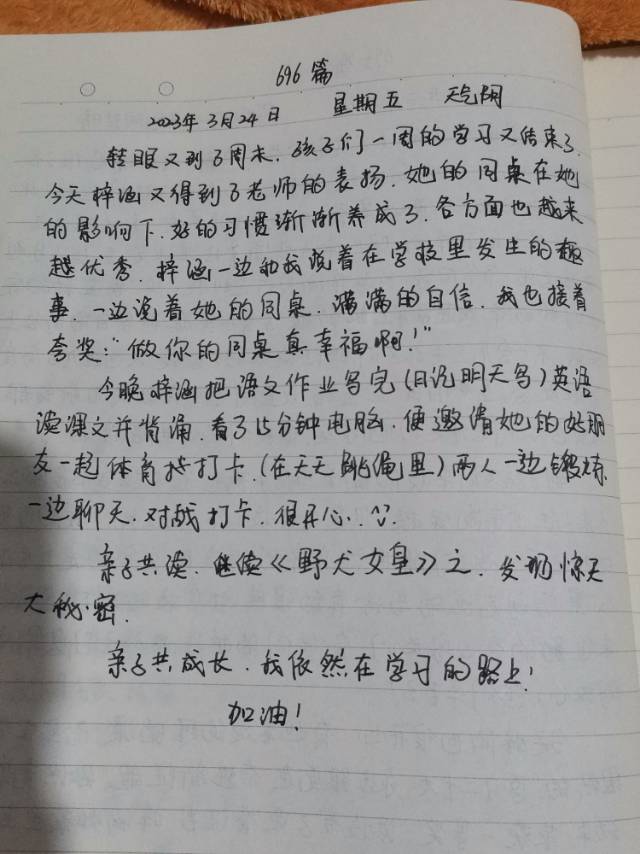 696篇
2023年3月24日 星期五 天气阴
转眼又到了周末.孩子们一周的学习又结束了.
今天梓涵又得到了老师的表扬.她的同桌在她
的影响下.好的习惯渐渐养成了.各方面也越来
越优秀.梓涵一边和我说着在学校里发生的趣
事.一边说着她的同桌.满满的自信.我也接着
夸奖:"做你的同桌真幸福啊!"
今晚梓涵把语文作业写完(日记明天写)英语
读课文并背诵.看了15分钟电脑.便邀请她的好朋
友一起体育技打卡.(在天天跳绳里)两人一边锻炼.
一边聊天.对战打卡.很开心.^.^.
亲子共读.继续《野犬女皇》之.发现惊天
大秘密.
亲子共成长.我依然在学习的路上!
加油!